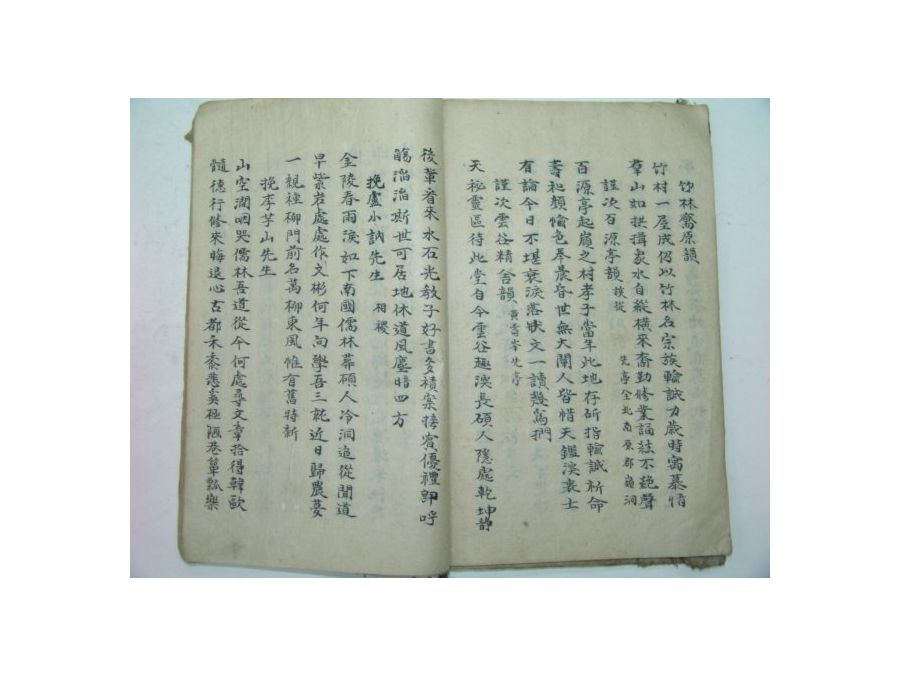 竹林齋原韻
竹村一屋成仍以竹林名宗族輸誠力歲時寓慕情
羣山如拱揖衆水自縱橫來裔勤修業誦絃不絶聲
謹次百源亭韻 先亭全北南原郡 洞
百源亭起 之村孝子當年此地存斫指輸誠祈命
壽和顔愉色奉晨昏世無大闡人皆惜天鑑深衷士
有論今日不堪衰淚落狀文一讀幾 捫
謹次雲谷精舍韻 黃 岑先亭
天秘靈區待此堂自今雲谷趣深長碩人隱處乾坤静
後輩看來水石光敎子好書多積案接賓優禮卽呼
觴滔滔斯世可居地休道風塵暗四方
挽盧小訥先生 相稷
金陵春雨淚如下南國儒林葬碩人冷洞追從聞道
早紫岩處處作文彬何年向學吾三 近日歸農夢
一親種柳門前名萬柳東風惟有舊時新
挽李芋山先生
山空澗咽哭儒林吾道從今何處尋文章拾得韓歐
髓德行修來晦退心古都禾黍悲奚極陋巷簞瓢樂